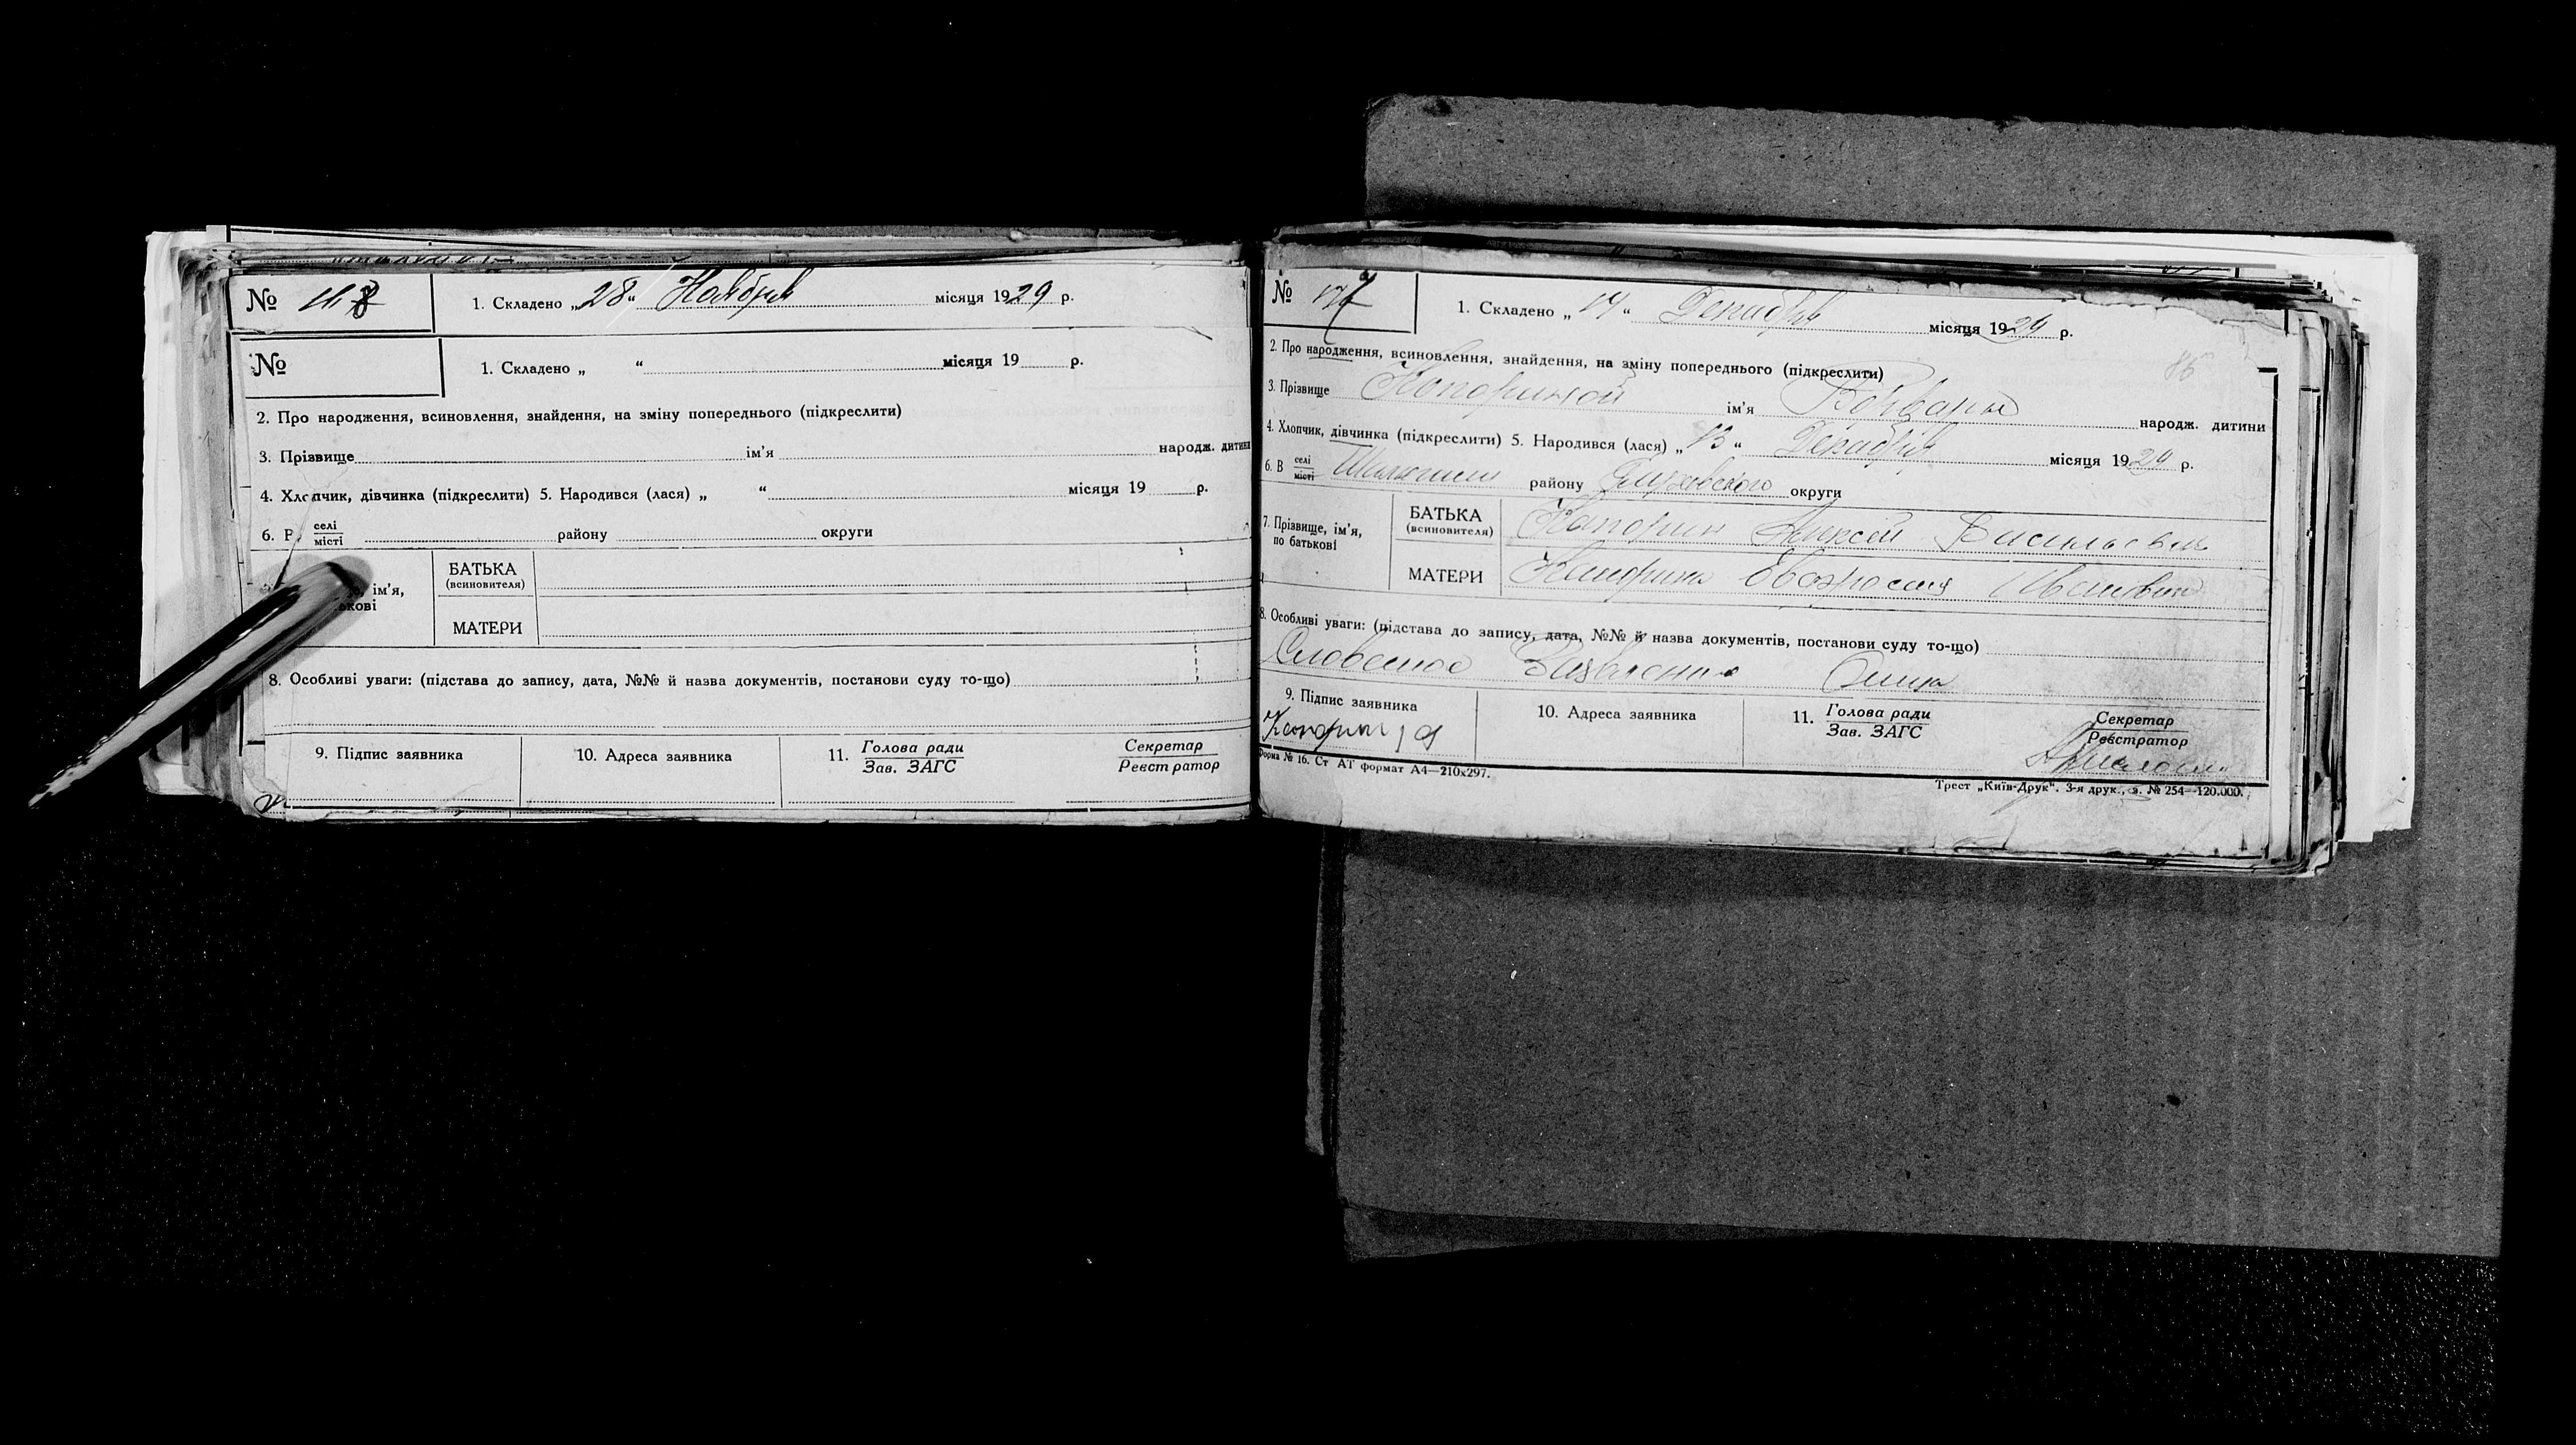 № 1. Складено „28“ Ноября місяця 1929 р.
№ 1. Складено „ “ місяця 19 р.
2. Про народження, всиновлення, знайдення, на зміну попереднього (підкреслити)
3. Прізвище ім'я народж. дитини
4. Хлопчик, дівчинка (підкреслити) 5. Народився (лася) „ “ місяця 19 р.
6. В селі місті району округи
ім'я,
БАТЬКА
(всиновителя)
МАТЕРИ
8. Особливі уваги: (підстава до запису, дата, №№ й назва документів, постанови суду то-що)
9. Підпис заявника 10. Адреса заявника 11. Голова ради Секретар
Зав. ЗАГС Реєстратор
№ 1. Складено „ “ Декабря місяця 1929 р.
86
2. Про народження, всиновлення, знайдення, на зміну попереднього (підкреслити)
3. Прізвище ім'я народж. дитини
4. Хлопчик, дівчинка (підкреслити) 5. Народився (лася) „13“ Декабря місяця 1929 р.
6. В селі місті району Глуховского округи
7. Прізвище, ім'я, по батькові
БАТЬКА (всиновителя) Капорин Алексей Васильевич
МАТЕРИ Капорина Ивановна
8. Особливі уваги: (підстава до запису, дата, №№ й назва документів, постанови суду то-що)
Словесное Заявление Отца
9. Підпис заявника 10. Адреса заявника 11. Голова ради Секретар
Зав. ЗАГС Реєстратор
Форма № 16. Ст АТ формат А4—210х297.
Трест „Київ-Друк“. 3-я друк., з. № 254—120.000.